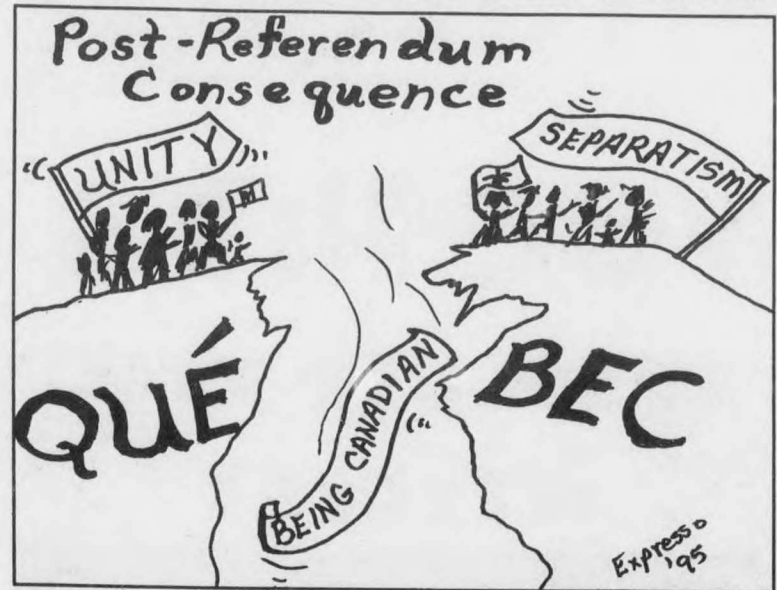 Post-Referendum
Consequence
UNITY
SEPARATISM
QUÉ
BEC
BEING CANADIAN
Expresso
'95